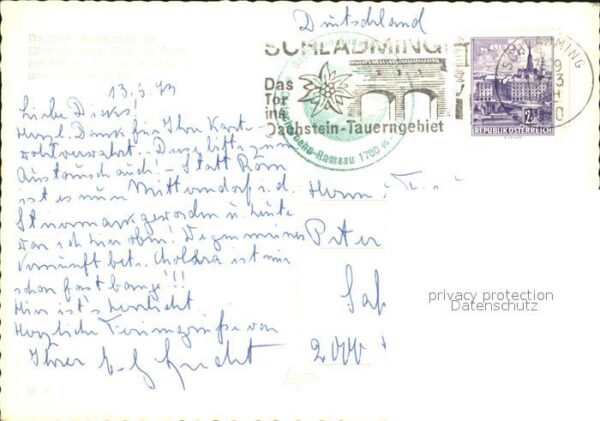 Deutschland
SCHLADMING
Das
Tor
ins
Dachstein-Tauerngebiet
Ramsau 1700 m
REPUBLIK ÖSTERREICH
13.3.79
Liebe
Herzl. Dank für Ihre Karte -
wohlverwahrt. Diese bitte zum
Austausch auch! - Statt Rom
ist es nun Mitterndorf i. d.
Steiermark geworden u. heute
war ich hier oben. Wegen meiner
Vernunft betr. Cholera ist mir
schon fast bange!!!
Hier ist's herrlicht
Herzliche Feriengrüße von
Ihrer
Herrn
Peter
2000
privacy protection
Datenschutz